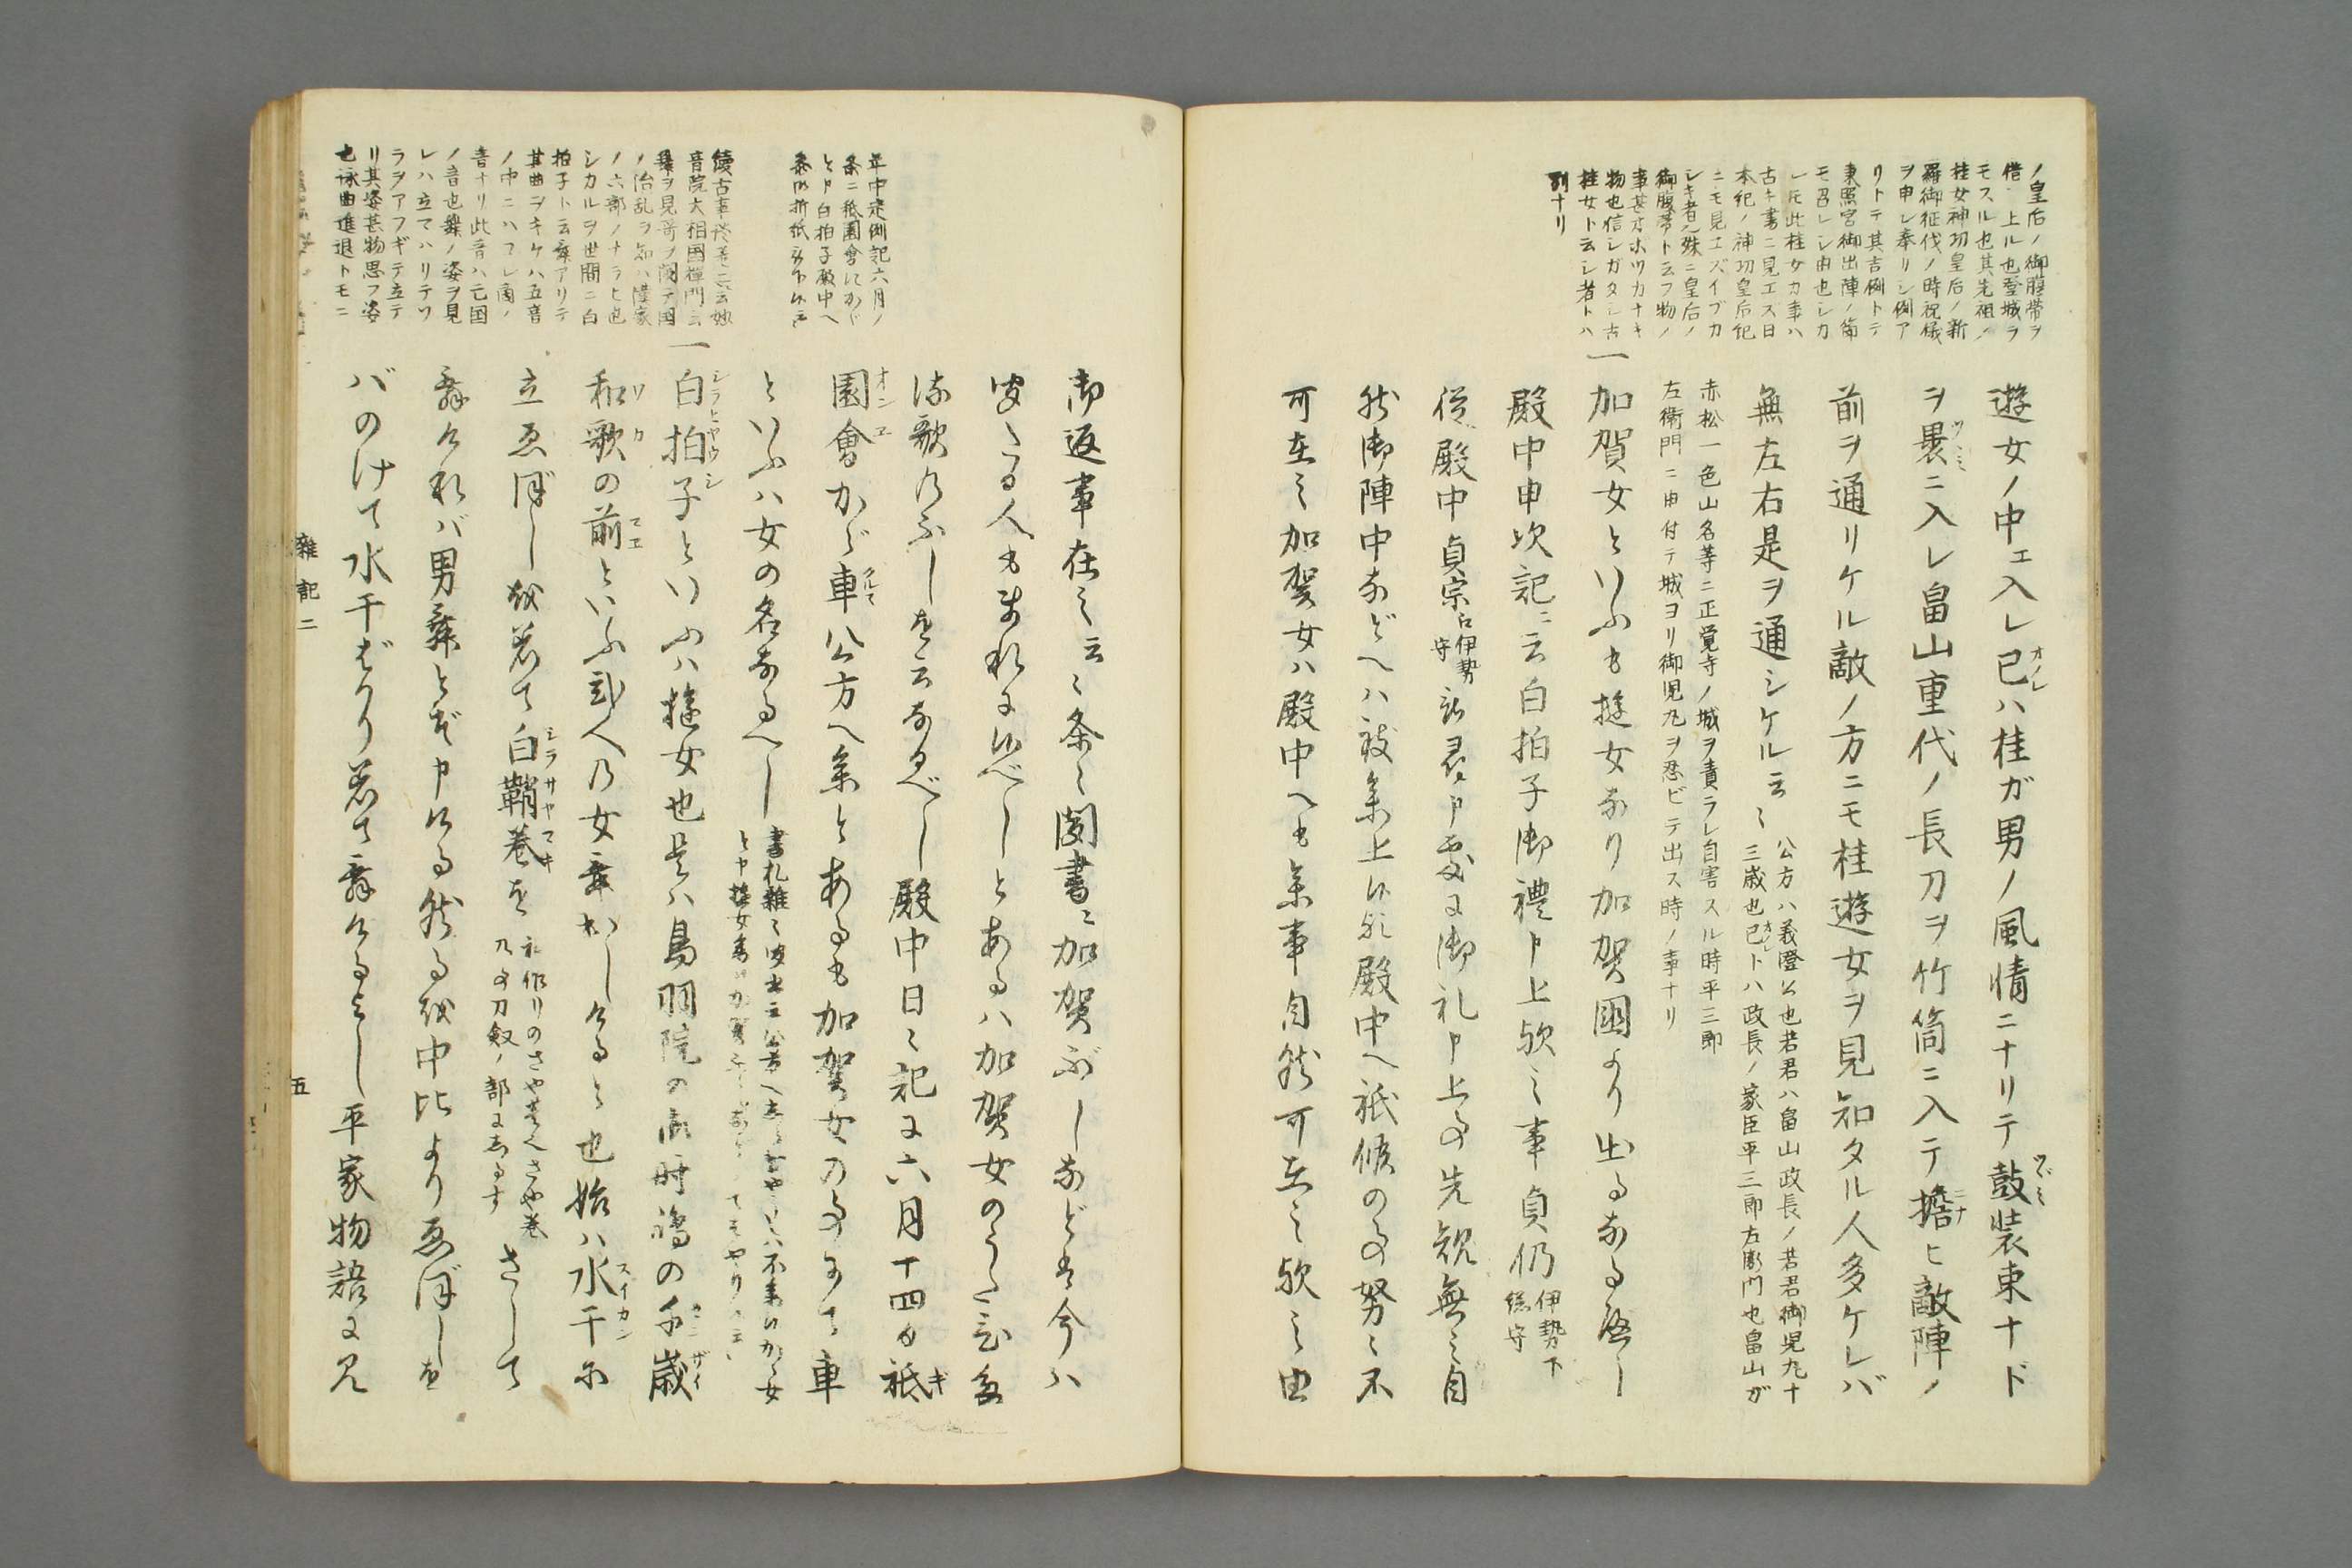 ノ皇后ノ御腹帯ヲ
借上ル也登城ラ
モスル也其先祖ノ
桂女神功皇后ノ新
羅御征伐ノ時祝儀
ヲ申シ奉リシ例ア
リトテ其吉例トテ
東照宮御出陣ノ節
モ召レシ由也シカ
レ𪜈此桂女カ事ハ
古キ書ニ見エス日
本紀ノ神功皇后紀
ニモ見エズイブカ
シキ者ノ殊ニ皇后ノ
御腹帯ト云フ物ノ
事甚オホツカナキ
物也信シガタシ古
桂女ト云シ者トハ
別ナリ
遊女ノ中エ入レ己ハ桂ガ男ノ風情ニナリテ鼓装束ナド
ヲ褁ニ入レ畠山重代ノ長刀ヲ竹筒ニ入テ擔ヒ敵陣ノ
前ヲ通リケル敵ノ方ニモ桂遊女ヲ見知タル人多ケレバ
無左右是ヲ通シケル云〻
公方ハ義澄公也若君ハ畠山政長ノ若君御児丸十
三歳也己トハ政長ノ家臣平三郎左衛門也畠山ガ
赤松一色山名等ニ正覚寺ノ城ヲ責ラレ自害スル時平三郎
左衛門ニ申付テ城ヨリ御児丸ヲ忍ビテ出ス時ノ事ナリ
一加賀女といふも遊女なり加賀國より出るなるべし
殿中申次記ニ云白拍子御禮申上候之事貞仍
伊勢下
総守
従殿中貞宗
伊勢
守
被尋申處に御礼申上る事先規無之自
然御陣中などへハ被参上候欤殿中へ祗候の事努〻不
可在之加賀女ハ殿中へも参事自然可在之欤之由
御返事在之云〻条〻聞書ニ加賀ぶしなどは今ハ
覚たる人もまれに候べしとあるハ加賀女のうたひたる
流歌のふしを云なるべし殿中日〻記に六月十四日祇
園會かゞ車公方へ参とあるも加賀女の事にて車
といふハ女の名なるべし
一白拍子といふハ遊女也是ハ鳥羽院の御時嶋の千歳
和歌の前といふ弐人の女舞出しけると也始ハ水干に
立ゑぼし被着て白鞘巻を
さして
舞けれバ男舞とぞ申ける然る越中比よりゑぼしを
バのけて水干ばかり着て舞けるよし平家物語に見
年中定例記六月ノ
条ニ祇園會にかゞ
と申白拍子殿中へ
続古事談巻二云妙
音院大相国禅門云
舞ヲ見哥ヲ聞テ国
ノ治乱ヲ知ハ漢家
ノ六部ノナラヒ也
シカルヲ世間ニ白
拍子ト云舞アリテ
其曲ヲキケハ五音
ノ中ニハコレ商ノ
音ナリ此音ハ亡国
ノ音也舞ノ姿ヲ見
レハ立マハリテソ
ラヲアフギテ立テ
リ其姿甚物思フ姿
也詠曲進退トモニ
雜記二
五